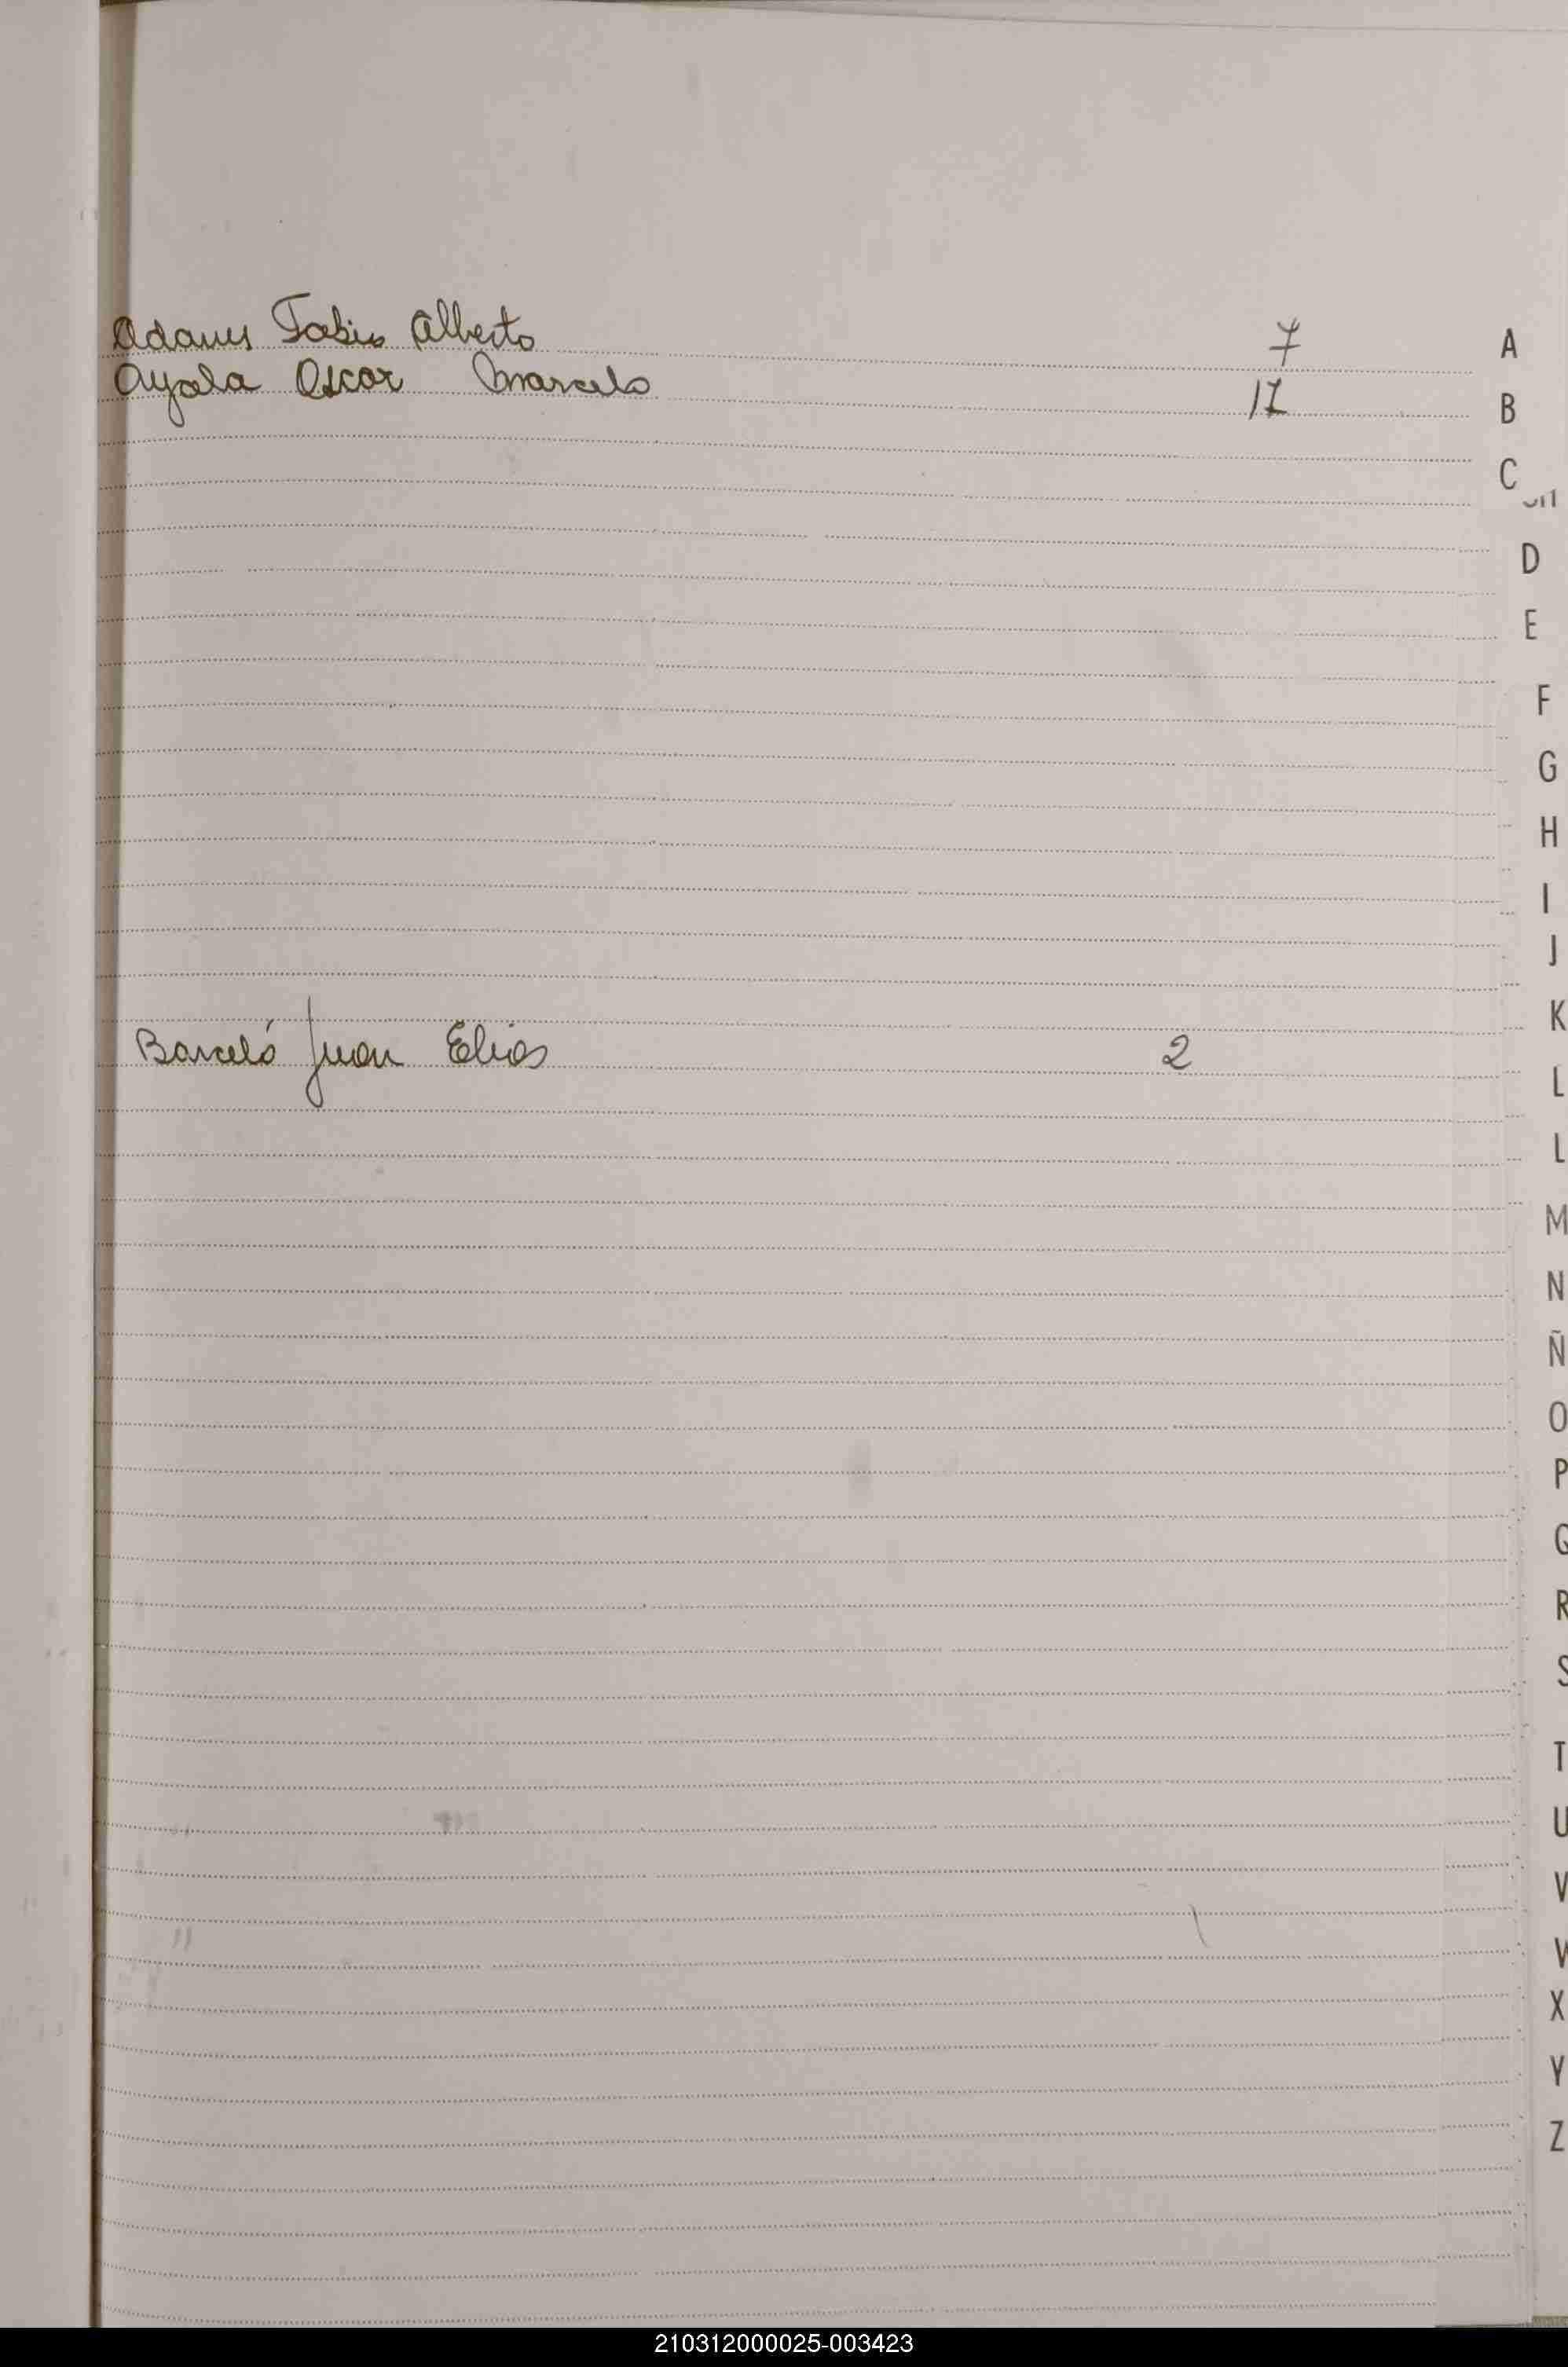 Adams Fabio Alberto 7
Ayala Oscar Marcelo 17
Barceló Juan Elias 2
A
B
C
D
E
F
G
H
I
J
K
L
L
M
N
Ñ
O
P
Q
R
S
T
U
V
X
Y
Z
210312000025-003423